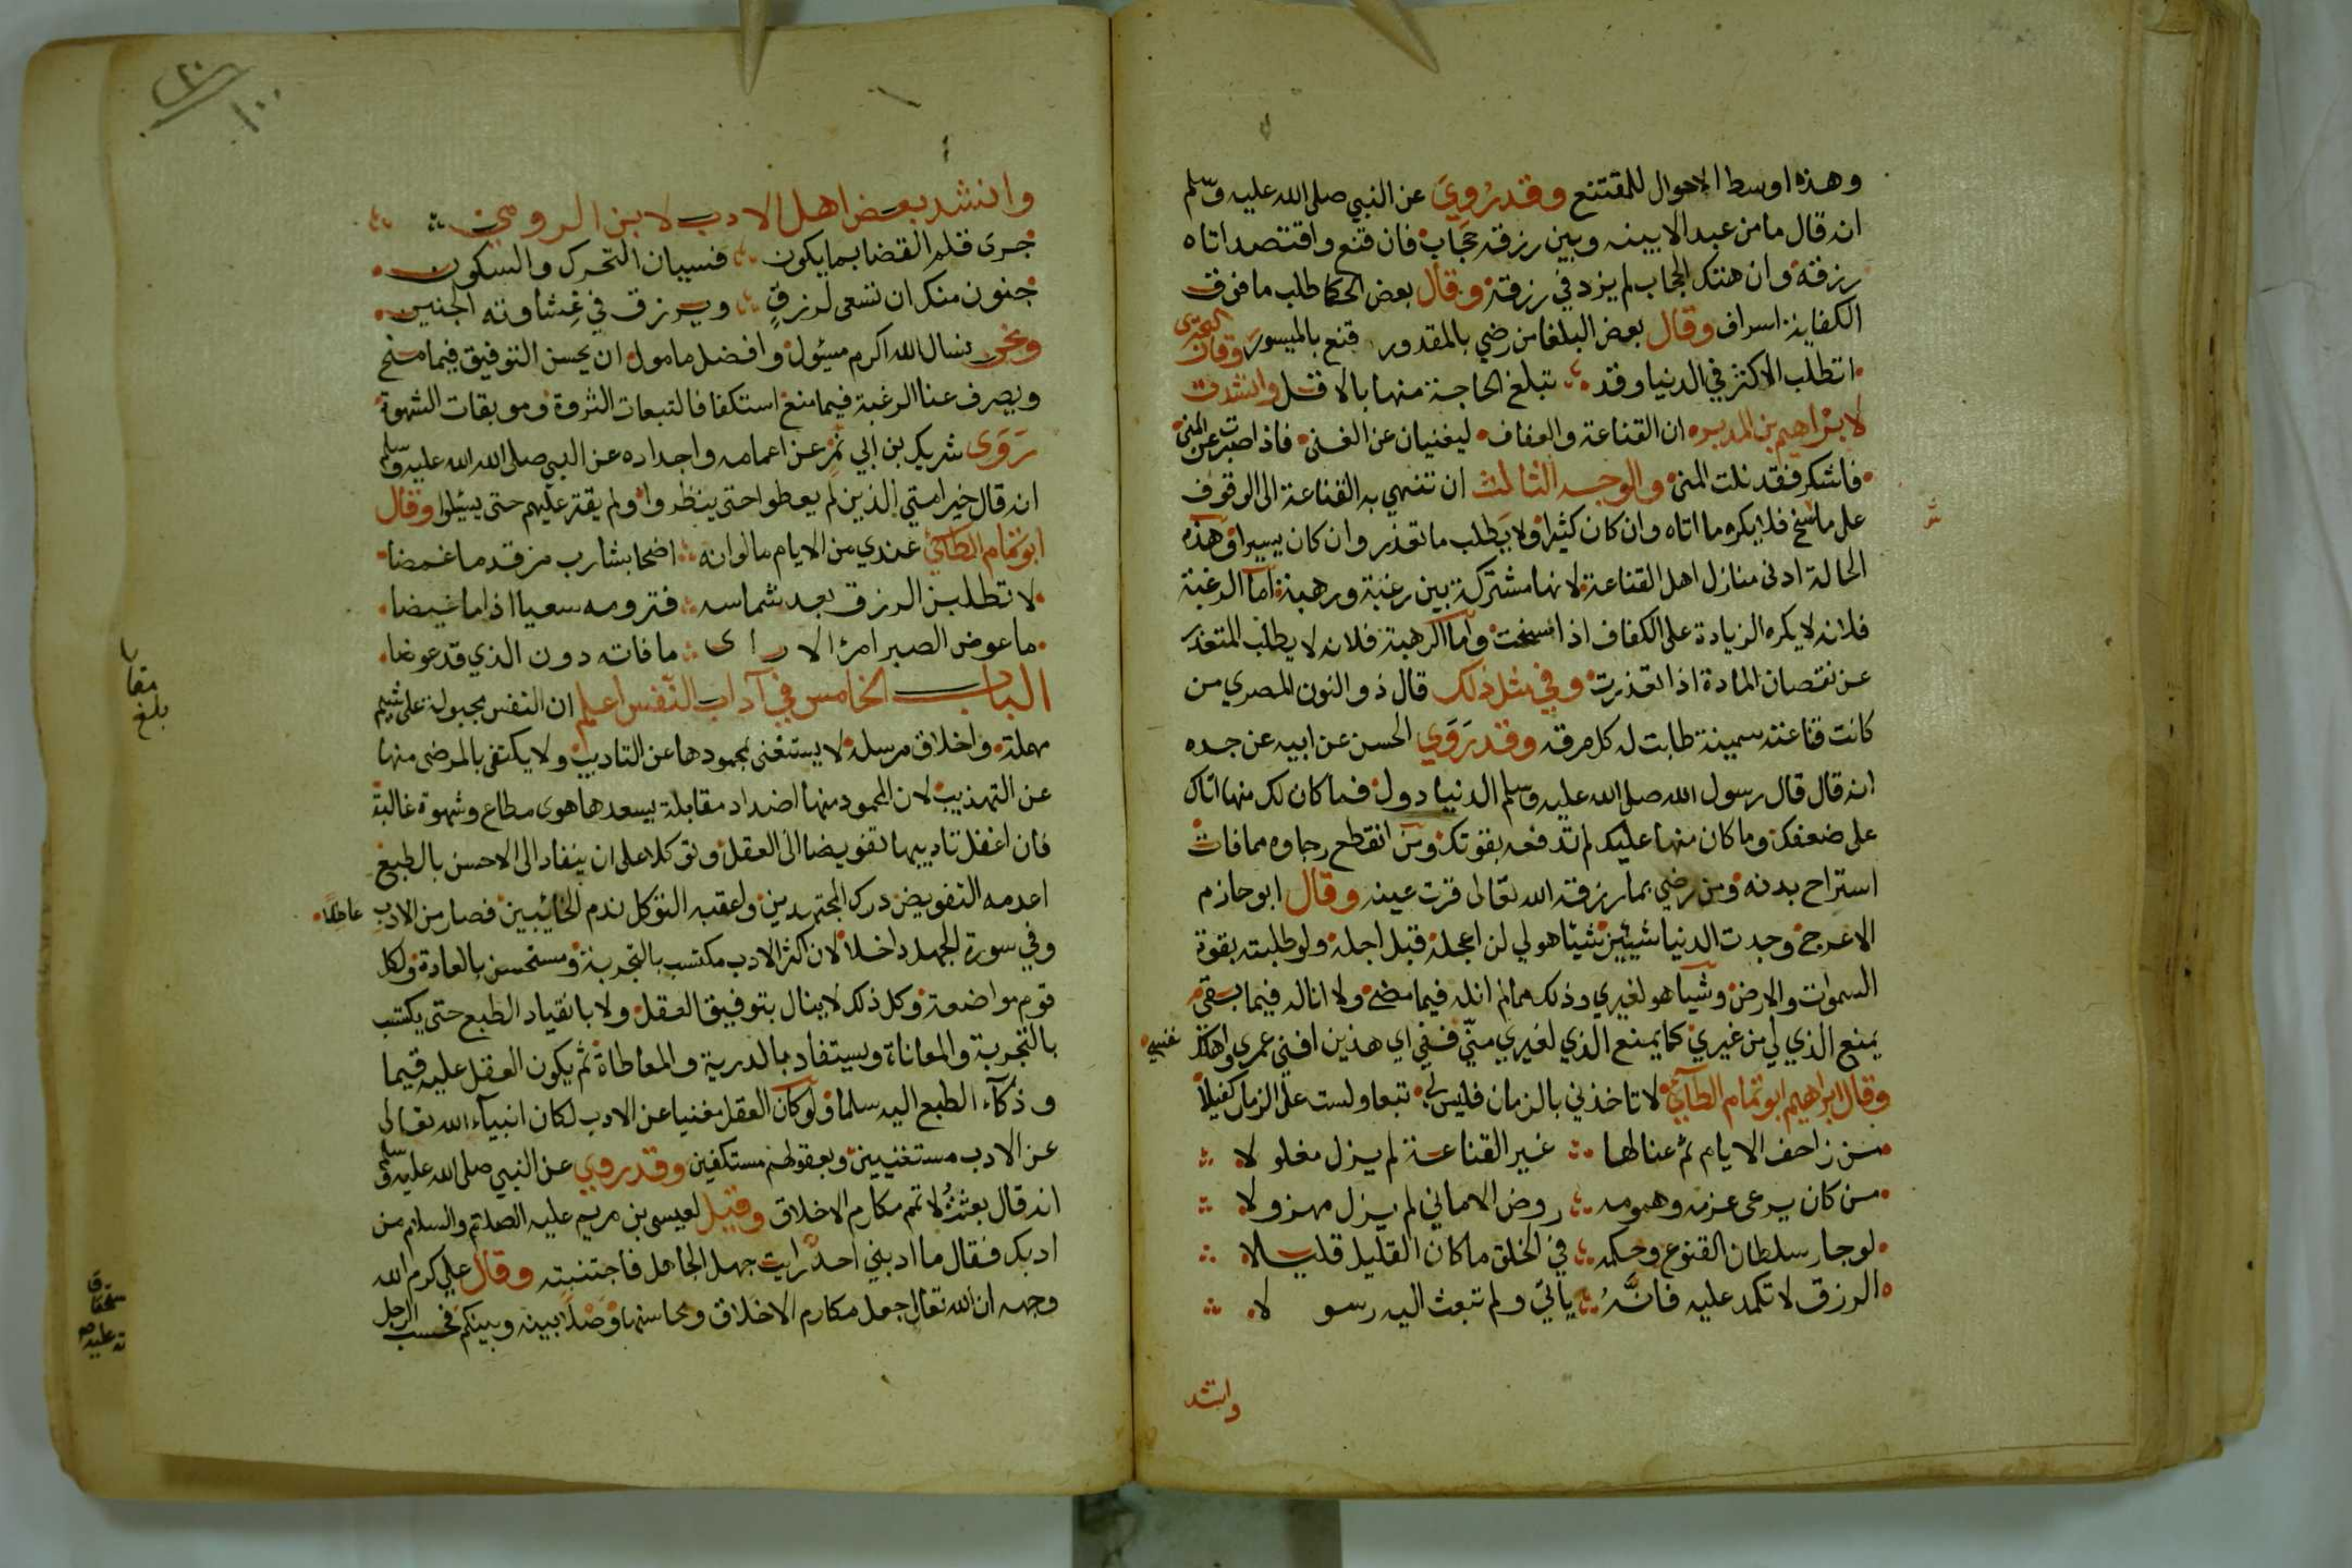 وهذه اوسط الاحوال للمقتنع وقد روي عن النبي صلى الله عليه وسلم
انه قال ما من عبد الا بينه وبين رزقه حجاب فان قنع واقتصد اتاه
رزقه وان هتك الحجاب لم يزد في رزقه وقال بعض الحكما طلب ما فوق
الكفاية اسراف وقال بعض البلغا من رضي بالمقدور قنع بالميسور وقال البحتري
اتطلب الاكثر في الدنيا وقد تبلغ الحاجة منها بالاقل وانشدت
لابراهيم بن المدبر ان القناعة والعفاف ليغنيان عن الغنى فاذا صبرت عن المنى
فاشكر فقد نلت المنى والوجه الثالث ان تنتهي به القناعة الى الوقوف
على ما سنح فلا يكره ما اتاه وان كان كثيرا ولا يطلب ما تعذر وان كان يسيرا وهذه
الحالة ادنى منازل اهل القناعة لانها مشتركة بين رغبة ورهبة اما الرغبة
فلانه لا يكره الزيادة على الكفاف اذا سنحت واما الرهبة فلانه لا يطلب المتعذر
عن نقصان المادة اذا تعذرت وفي مثل ذلك قال ذو النون المصري من
كانت قناعته سمينة طابت له كل مرقه وقد روي الحسن عن ابيه عن جده
انه قال قال رسول الله صلى الله عليه وسلم الدنيا دول فما كان لك منها اتاك
على ضعفك وما كان منها عليك لم تدفعه بقوتك ومن انقطع رجاوه مما فات
استراح بدنه ومن رضي بما رزقه الله تعالى قرت عينه وقال ابو حازم
الاعرج وجدت الدنيا شيئين شيئا هو لي لن اعجله قبل اجله ولو طلبته بقوة
السموات والارض وشيا هو لغيري وذلك مما لم انله فيما مضى ولا اناله فيما بقى
يمنع الذي لي من غيري كما يمنع الذي لغيري مني ففي اي هذين افني عمري واهلك نفسي
وقال ابراهيم ابو تمام الطائي لا تاخذني بالزمان فليس لي تبعا ولست على الزمان كفيلا
من زاحف الايام ثم عنا لها غير القناعة لم يزل مفلولا
من كان يرعى عزمه وهمومه روض الاماني لم يزل مهزولا
لو جار سلطان القنوع وحكمه في الخلق ما كان القليل قليلا
الرزق لا تكمد عليه فانه ياتي ولم تبعث اليه رسولا
وانشد
وانشد بعض اهل الادب لابن الرومي
جرى قلم القضا بما يكون فسيان التحرك والسكون
جنون منك ان تسعى لرزق ويرزق في غشاوته الجنين
ونحن نسال الله اكرم مسئول وافضل مامول ان يحسن التوفيق فيما منح
ويصرف عنا الرغبة فيما منع استكفافا لتبعات الثروة وموبقات الشهوة
روى شريك بن ابي نمر عن اعمامه واجداده عن النبي صلى الله الله عليه وسلم
انه قال خير امتي الذين لم يعطوا حتى ينظروا ولم يقتر عليهم حتى يسئلوا وقال
ابو تمام الطائي عندي من الايام ما لو انه اضحا بشارب مرقد ما غمضا
لا تطلبن الرزق بعد شماسه فترومه سعيا اذا ما غيضا
ما عوض الصبر امرؤ الا راى ما فاته دون الذي قد عوضا
الباب الخامس في آداب النفس اعلم ان النفس مجبولة على شيم
مهملة واخلاق مرسلة لا يستغنى بمحمودها عن التاديب ولا يكتفى بالمرضى منها
عن التهذيب لان المحمود منها اضداد مقابلة يسعدها هوى مطاع وشهوة غالبة
فان اغفل تاديبها تفويضا الى العقل وتوكلا على ان ينقاد الى الاحسن بالطبع
اعدمه التفويض درك المجتهدين واعقبه التوكل ندم الخائبين فصار من الادب عاطلا
وفي سورة الجهل داخلا لان اكثر الادب مكتسب بالتجربة ومستحسن بالعادة ولكل
قوم مواضعة وكل ذلك لا ينال بتوفيق العقل ولا بانقياد الطبع حتى يكتسب
بالتجربة والمعاناة ويستفاد بالدربة والمعاطاة ثم يكون العقل عليه قيما
وذكآء الطبع اليه سلما ولو كان العقل مغنيا عن الادب لكان انبيآء الله تعالى
عن الادب مستغنيين وبعقولهم مستكفين وقد روي عن النبي صلى الله عليه وسلم
انه قال بعثت لاتمم مكارم الاخلاق وقيل لعيسى بن مريم عليه الصلاة والسلام من
ادبك فقال ما ادبني احد رايت جهل الجاهل فاجتنبته وقال علي كرم الله
وجهه ان الله تعالى جعل مكارم الاخلاق ومحاسنها وصلا بينه وبينكم فحسب الرجل
بلغ مقابلة